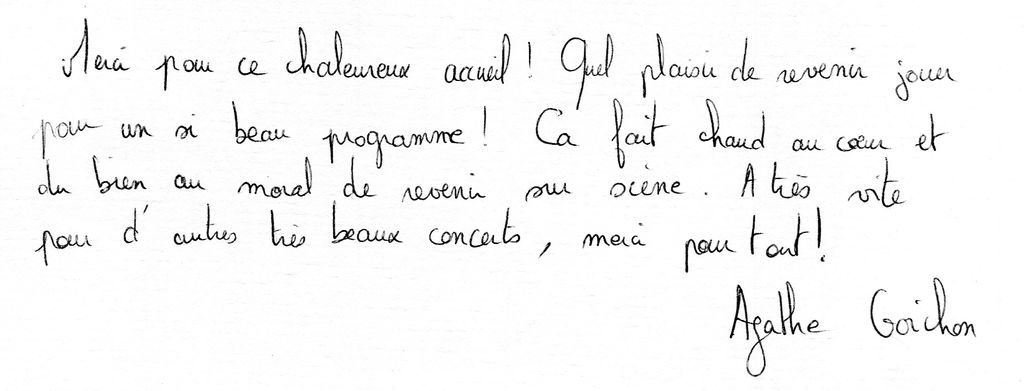 Merci pour ce chaleureux accueil ! Quel plaisir de revenir jouer
pour un si beau programme ! Ca fait chaud au cœur et
du bien au moral de revenir sur scène. A très vite
pour d'autres très beaux concerts, merci pour tout !
Agathe Goichon